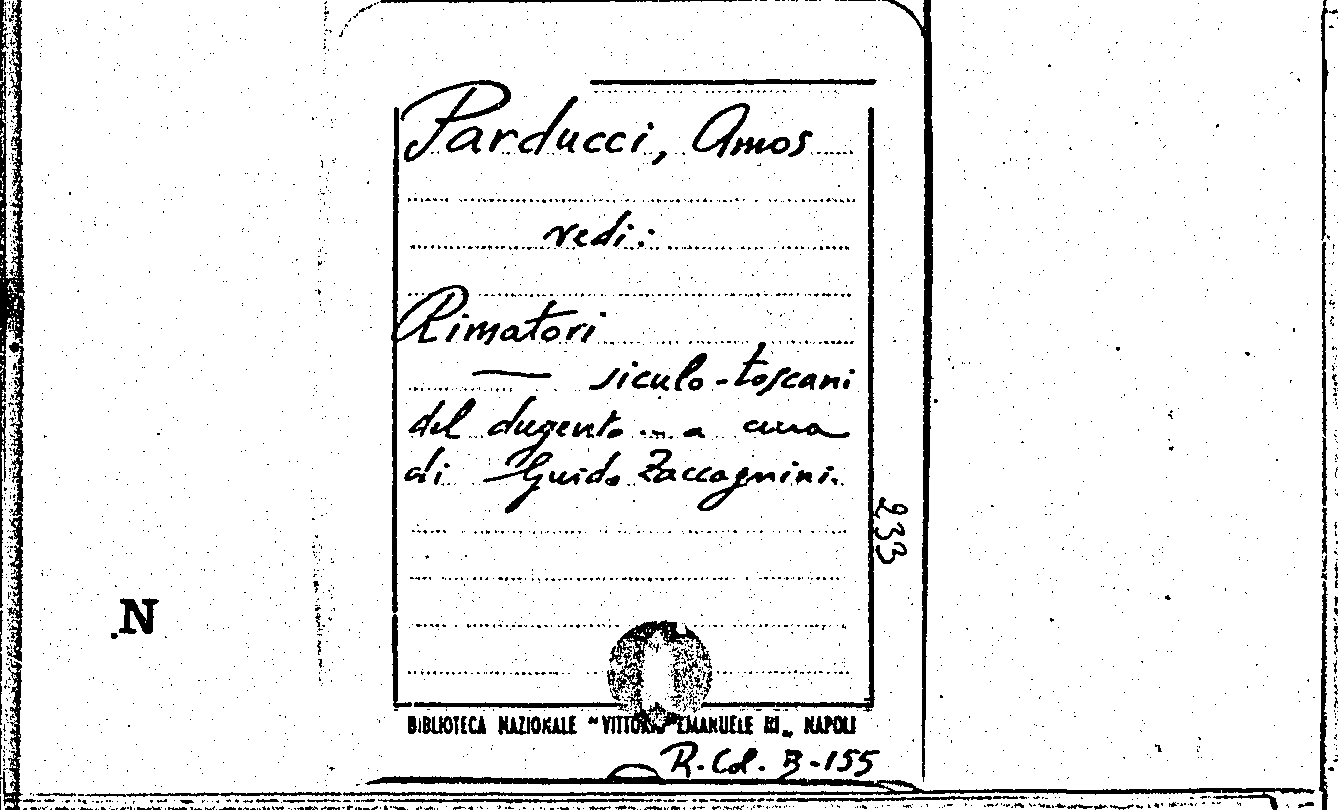 Parducci, Amos
vedi:
Rimatori
— siculo-toscani
del dugento... a cura
di Guido Zaccagnini.
233
N
BIBLIOTECA NAZIONALE "VITTORIO EMANUELE III„ NAPOLI
R. Col. B-155